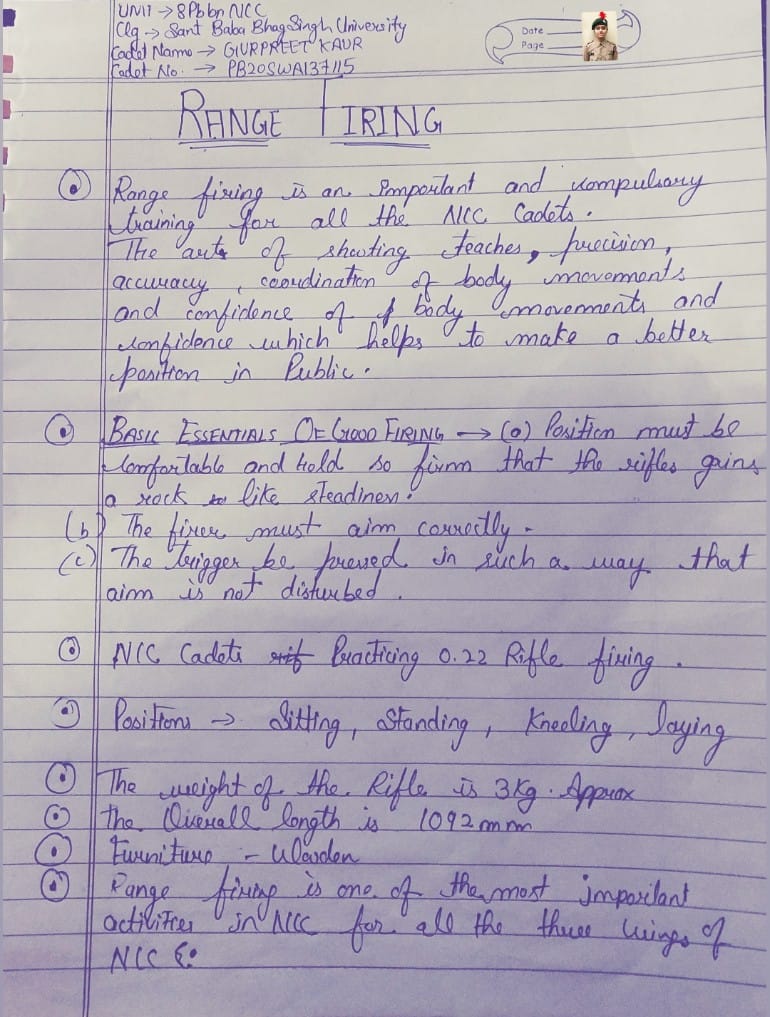 UNIT → 8Pbbn NCC
Clg → Sant Baba Bhag Singh University
Cadet Name → GURPREET KAUR
Cadet No. → PB20SWA137115
Date
Page
RANGE FIRING
Range firing is an important and compulsary
training for all the NCC Cadets.
The art of shooting teaches, precision,
accuracy, coordination of body movements
and confidence of body movements and
confidence which helps to make a better
position in Public.
BASIC ESSENTIALS OF GOOD FIRING → (a) Position must be
Comfortable and hold so firm that the rifles gains
a rock like steadiness.
(b) The firer must aim correctly.
(c) The trigger be pressed in such a way that
aim is not disturbed.
NCC Cadets Practicing 0.22 Rifle firing.
Positions → Sitting, Standing, Kneeling, laying
The weight of the Rifle is 3Kg. Approx
the Overall length is 1092mm
Furniture - Wooden
Range firing is one of the most important
activities in NCC for all the three wings of
NCC